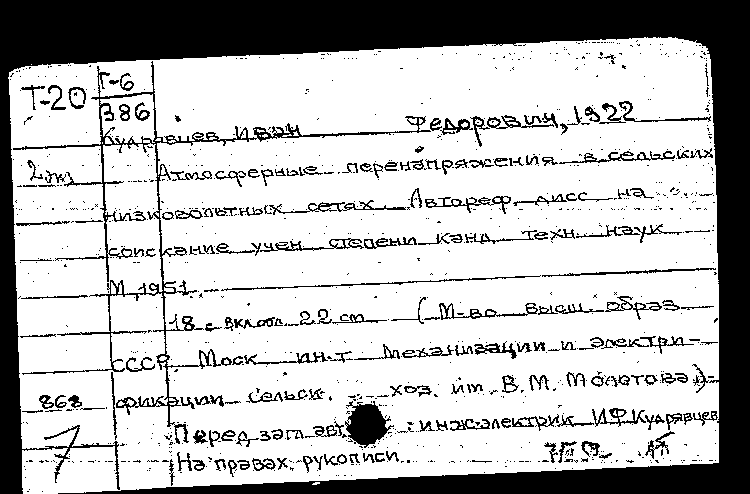 Т-20 Г-6
386
Кудрявцев, Иван Федорович, 1922
2 эк
Атмосферные перенапряжения в сельских
низковольтных сетях. Автореф. дисс. на
соискание учен. степени канд. техн. наук
М., 1951.
18 с. вкл. обл. 22 cm (М-во высш. образ.
СССР. Моск. ин-т механизации и электри-
868 фикации сельск. хоз. им. В. М. Молотова)-
7 Перед загл. авт.: инж-электрик И.Ф. Кудрявцев
На правах рукописи.